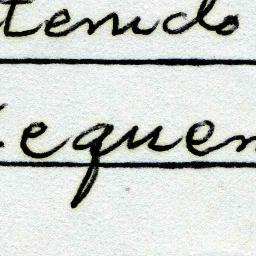 tenido
equen